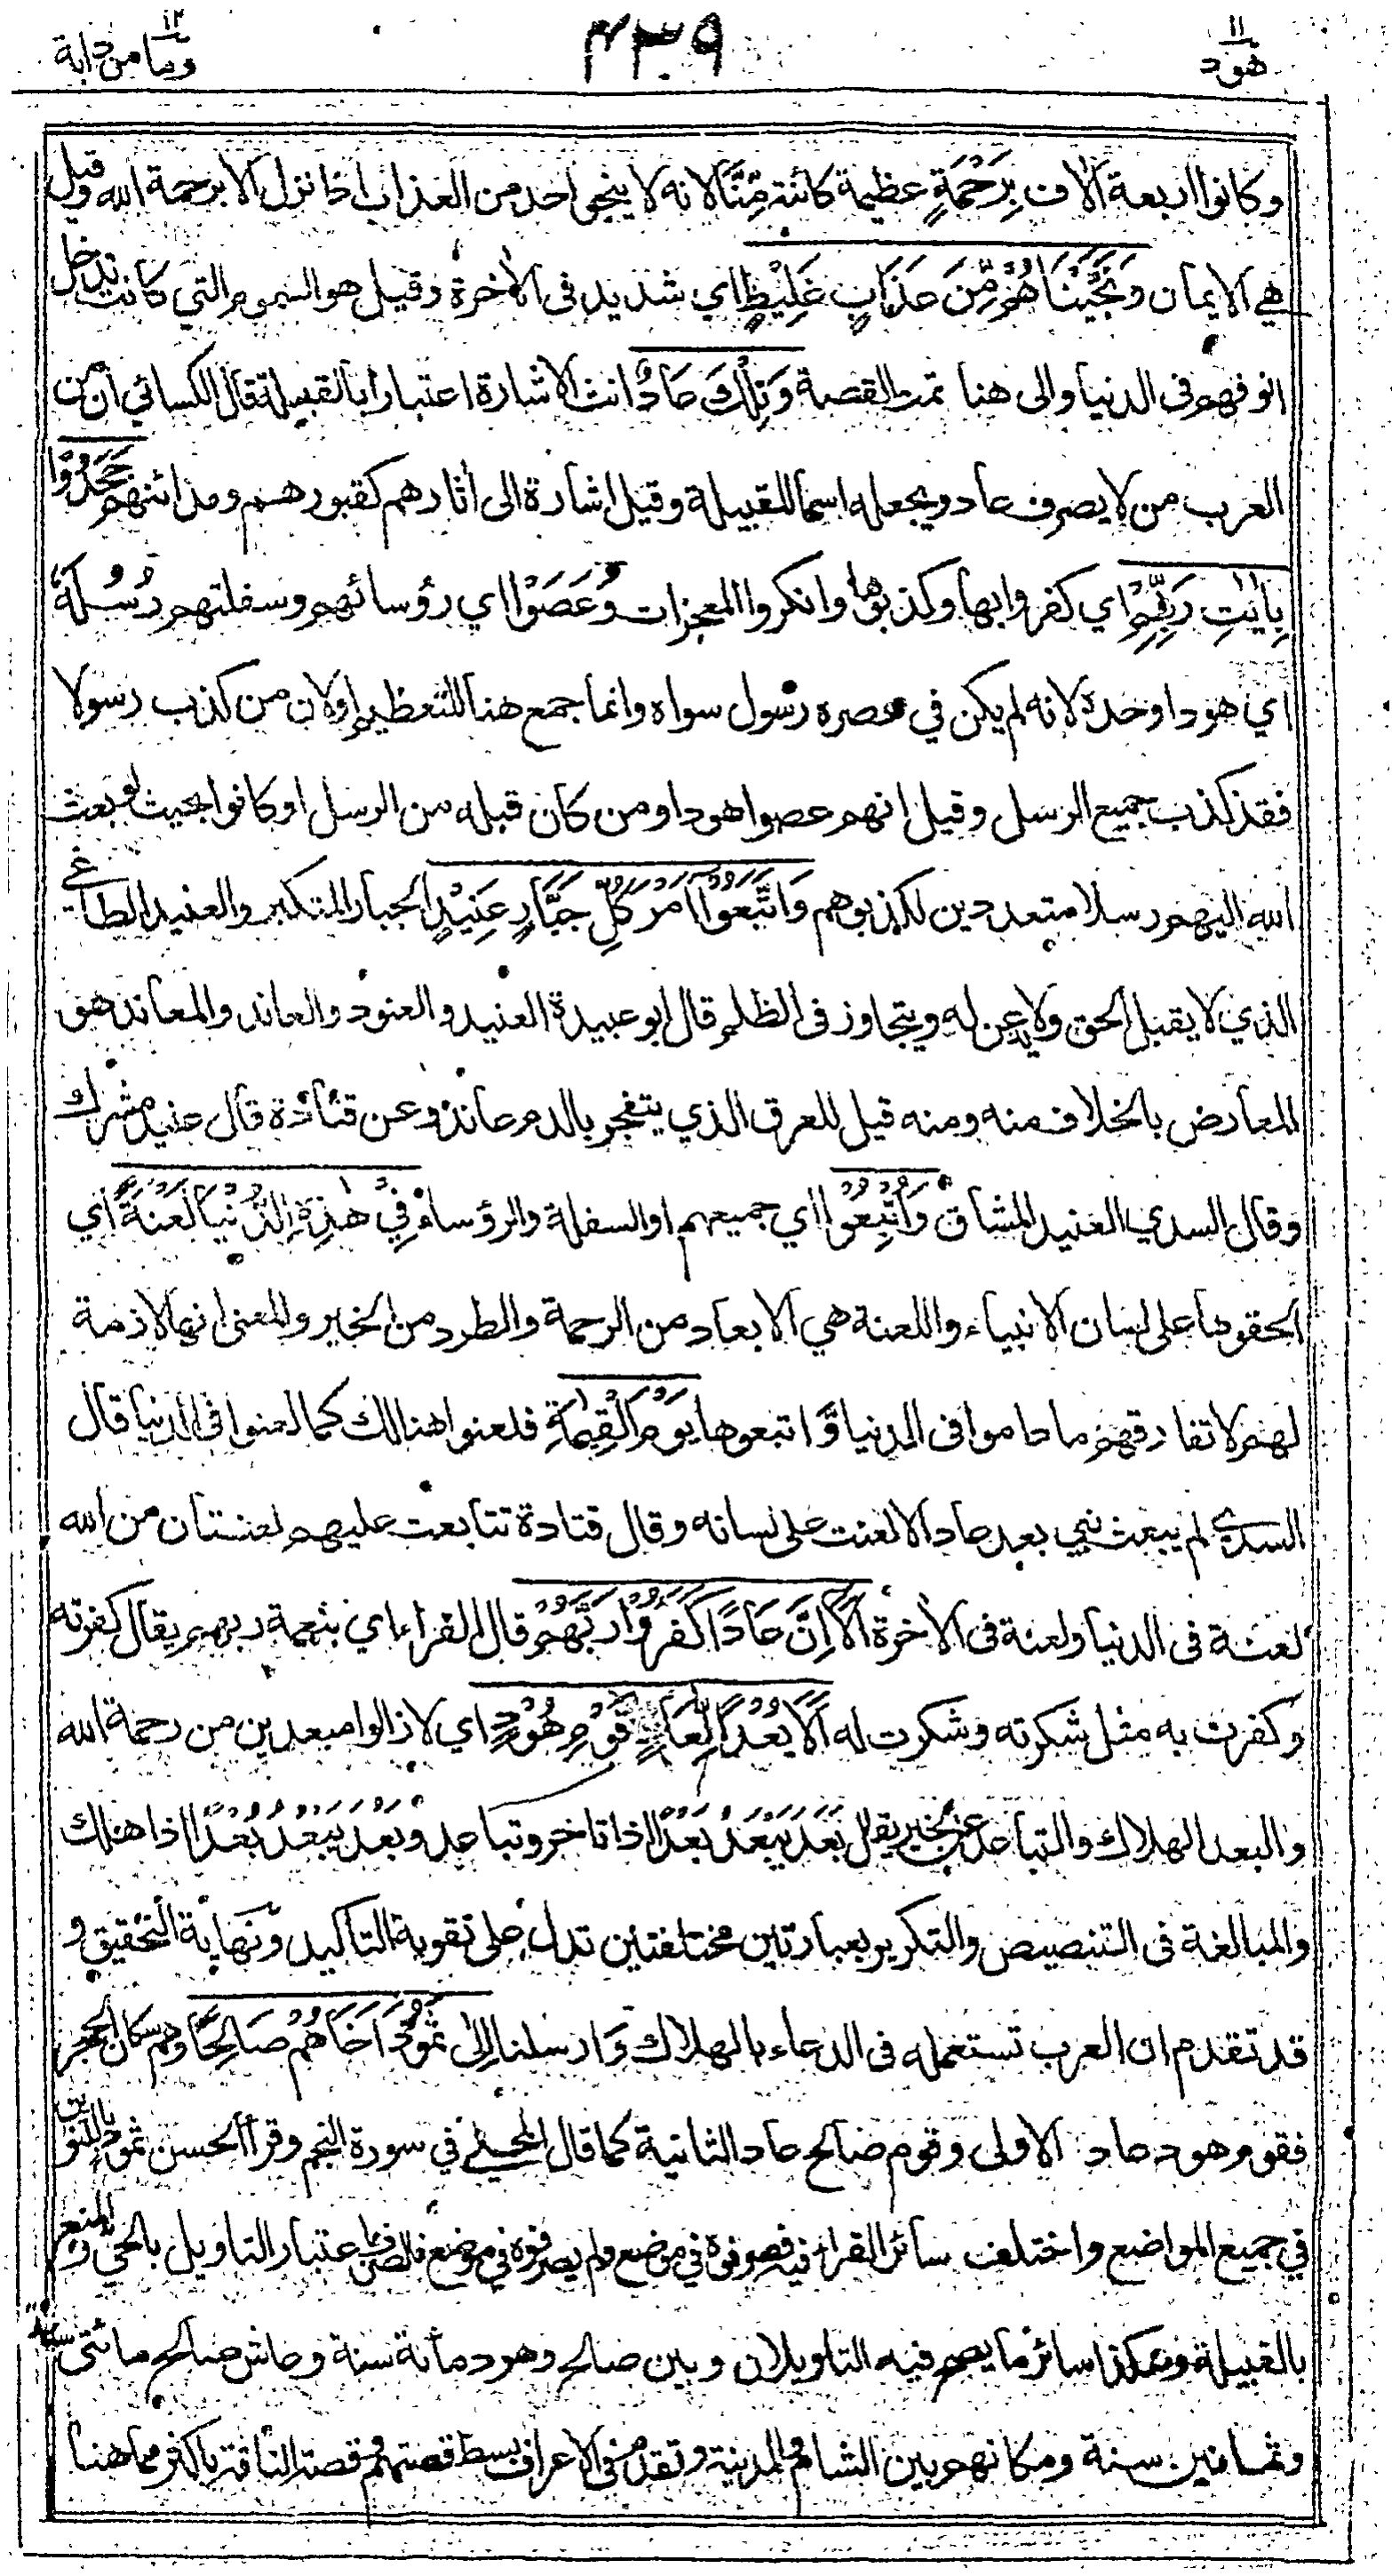 ١٢
وما من دابة
٤٣٩
١١
هود
وكانوا اربعة آلاف بِرَحْمَةٍ عظيمة كائنة مِّنَّا لانه لا ينجى احد من العذاب اذا نزل الا برحمة الله وقيل
هي الايمان وَنَجَّيْنَاهُمْ مِّنْ عَذَابٍ غَلِيْظٍ اي شديد فى الآخرة وقيل هو السموم التي كانت تدخل
انوفهم فى الدنيا والى هنا تمت القصة وَتِلْكَ عَادٌ انث الاشارة اعتبارا بالقبيلة قال الكسائي ان من
العرب من لا يصرف عاد ويجعله اسما للقبيلة وقيل اشارة الى اثارهم كقبورهم ومدائنهم جَحَدُوْا
بِاٰيٰتِ رَبِّهِمْ اي كفروا بها وكذبوها وانكروا المعجزات وَعَصَوْا اي رؤسائهم وسفلتهم رُسُلَهٗ
اي هودا وحده لانه لم يكن في عصره رسول سواه وانما جمع هنا للتعظيم اولان من كذب رسولا
فقد كذب جميع الرسل وقيل انهم عصوا هودا ومن كان قبله من الرسل او كانوا بحيث لو بعث
الله اليهم رسلا متعددين لكذبوهم وَاتَّبَعُوْا اَمْرَ كُلِّ جَبَّارٍ عَنِيْدٍ الجبار المتكبر والعنيد الطاغي
الذي لا يقبل الحق ولا يذعن له ويتجاوز فى الظلم قال ابو عبيدة العنيد والعنود والعاند والمعاند هو
المعارض بالخلاف منه ومنه قيل للعرق الذي يتفجر بالدم عاند وعن قتادة قال عنيد مشرك
وقال السدي العنيد المشاق وَاُتْبِعُوْا اي جميعهم او السفلة والرؤساء فِيْ هٰذِهِ الدُّنْيَا لَعْنَةً اي
الحقوها على لسان الانبياء واللعنة هي الابعاد من الرحمة والطرد من الخير والمعنى انها لازمة
لهم لا تفارقهم ما داموا فى الدنيا وَّ اتبعوها يَوْمَ الْقِيٰمَةِ فلعنوا هنالك كما لعنوا فى الدنيا قال
السدي لم يبعث نبي بعد عاد الا لعنت على لسانه وقال قتادة تتابعت عليهم لعنتان من الله
لعنة فى الدنيا ولعنة فى الآخرة اَلَا اِنَّ عَادًا كَفَرُوْا رَبَّهُمْ قال الفراء اي بنعمة ربهم يقال كفرته
وكفرت به مثل شكرته وشكرت له اَلَا بُعْدًا لِّعَادٍ قَوْمِ هُوْدٍ اي لا زالوا مبعدين من رحمة الله
والبعد الهلاك والتباعد عن الخير يقال بَعُدَ يَبْعُدُ بُعْدًا اذا تاخر وتباعد وبَعِدَ يَبْعَدُ بَعَدًا اذا هلك
والمبالغة فى التنصيص والتكرير بعبارتين مختلفتين تدل على تقوية التاكيد ونهاية التحقيق و
قد تقدم ان العرب تستعمله فى الدعاء بالهلاك وَ ارسلنا اِلٰى ثَمُوْدَ اَخَاهُمْ صَالِحًا وهم سكان الحجر
فقوم هود عاد الاولى وقوم صالح عاد الثانية كما قال المحلي في سورة النجم وقرأ الحسن ثمود بالتنوين
في جميع المواضع واختلف سائر القراء فيه فصرفوه في موضع ولم يصرفوه في موضع فالصرف باعتبار التاويل بالحي والمنع
بالقبيلة وهكذا سائر ما يصح فيه التاويلان وبين صالح وهود مائة سنة وعاش صالح مائتى سنة
وثمانين سنة ومكانهم بين الشام والمدينة وتقدم فى الاعراف بسط قصتهم وقصة الناقة باكثر مما هنا